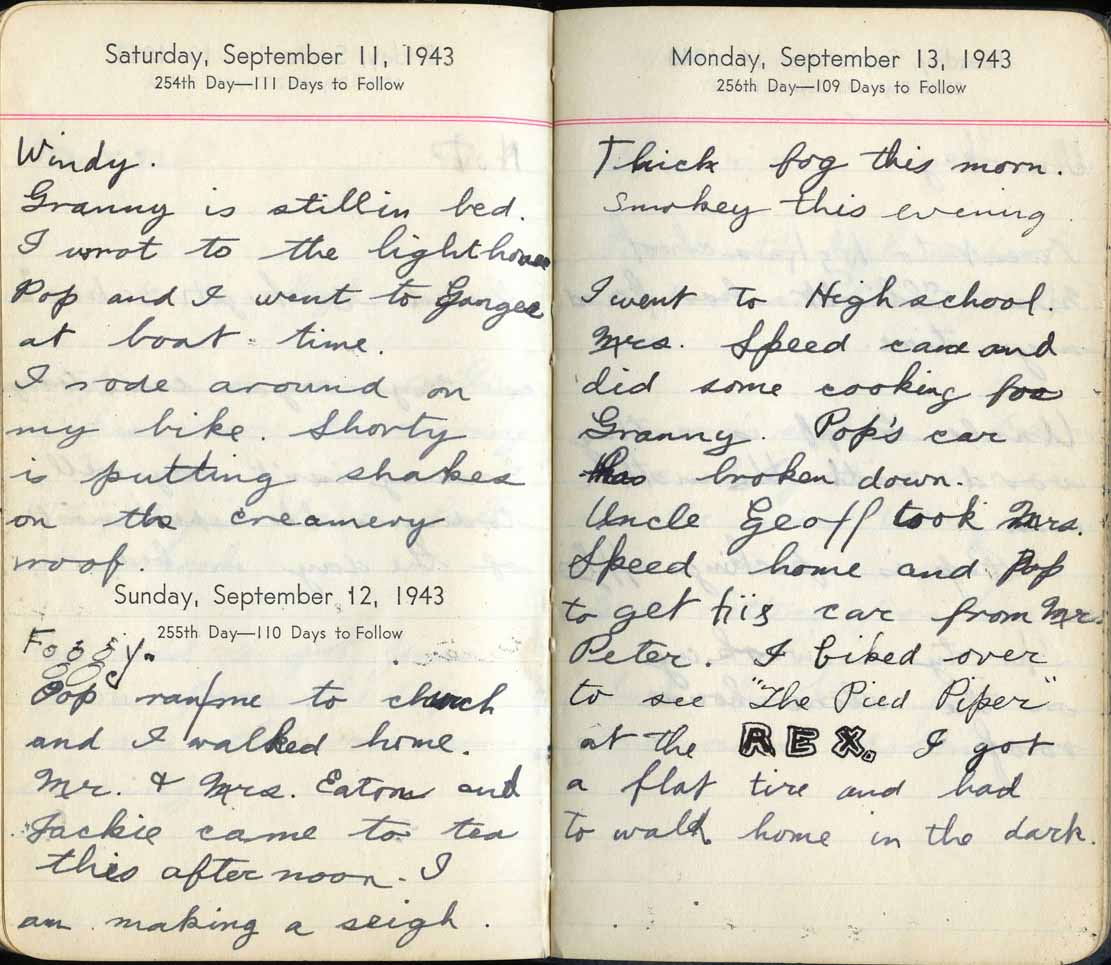 Saturday, September 11, 1943
254th Day—111 Days to Follow
Windy.
Granny is still in bed.
I wrot to the lighthouse
Pop and I went to Ganges
at boat-time.
I rode around on
my bike. Shorty
is putting shakes
on the creamery
roof.
Sunday, September 12, 1943
255th Day—110 Days to Follow
Foggy.
Pop ran me to church
and I walked home.
Mr. & Mrs. Eaton and
Jackie came to tea
this afternoon. I
am making a seigh.
Monday, September 13, 1943
256th Day—109 Days to Follow
Thick fog this morn.
Smokey this evening
I went To High school.
Mrs. Speed came and
did some cooking for
Granny. Pop's car
has broken down.
Uncle Geoff took Mrs.
Speed home and Pop
to get his car from Mr.
Peter. I biked over
to see "The Pied Piper"
at the REX. I got
a flat tire and had
to walk home in the dark.